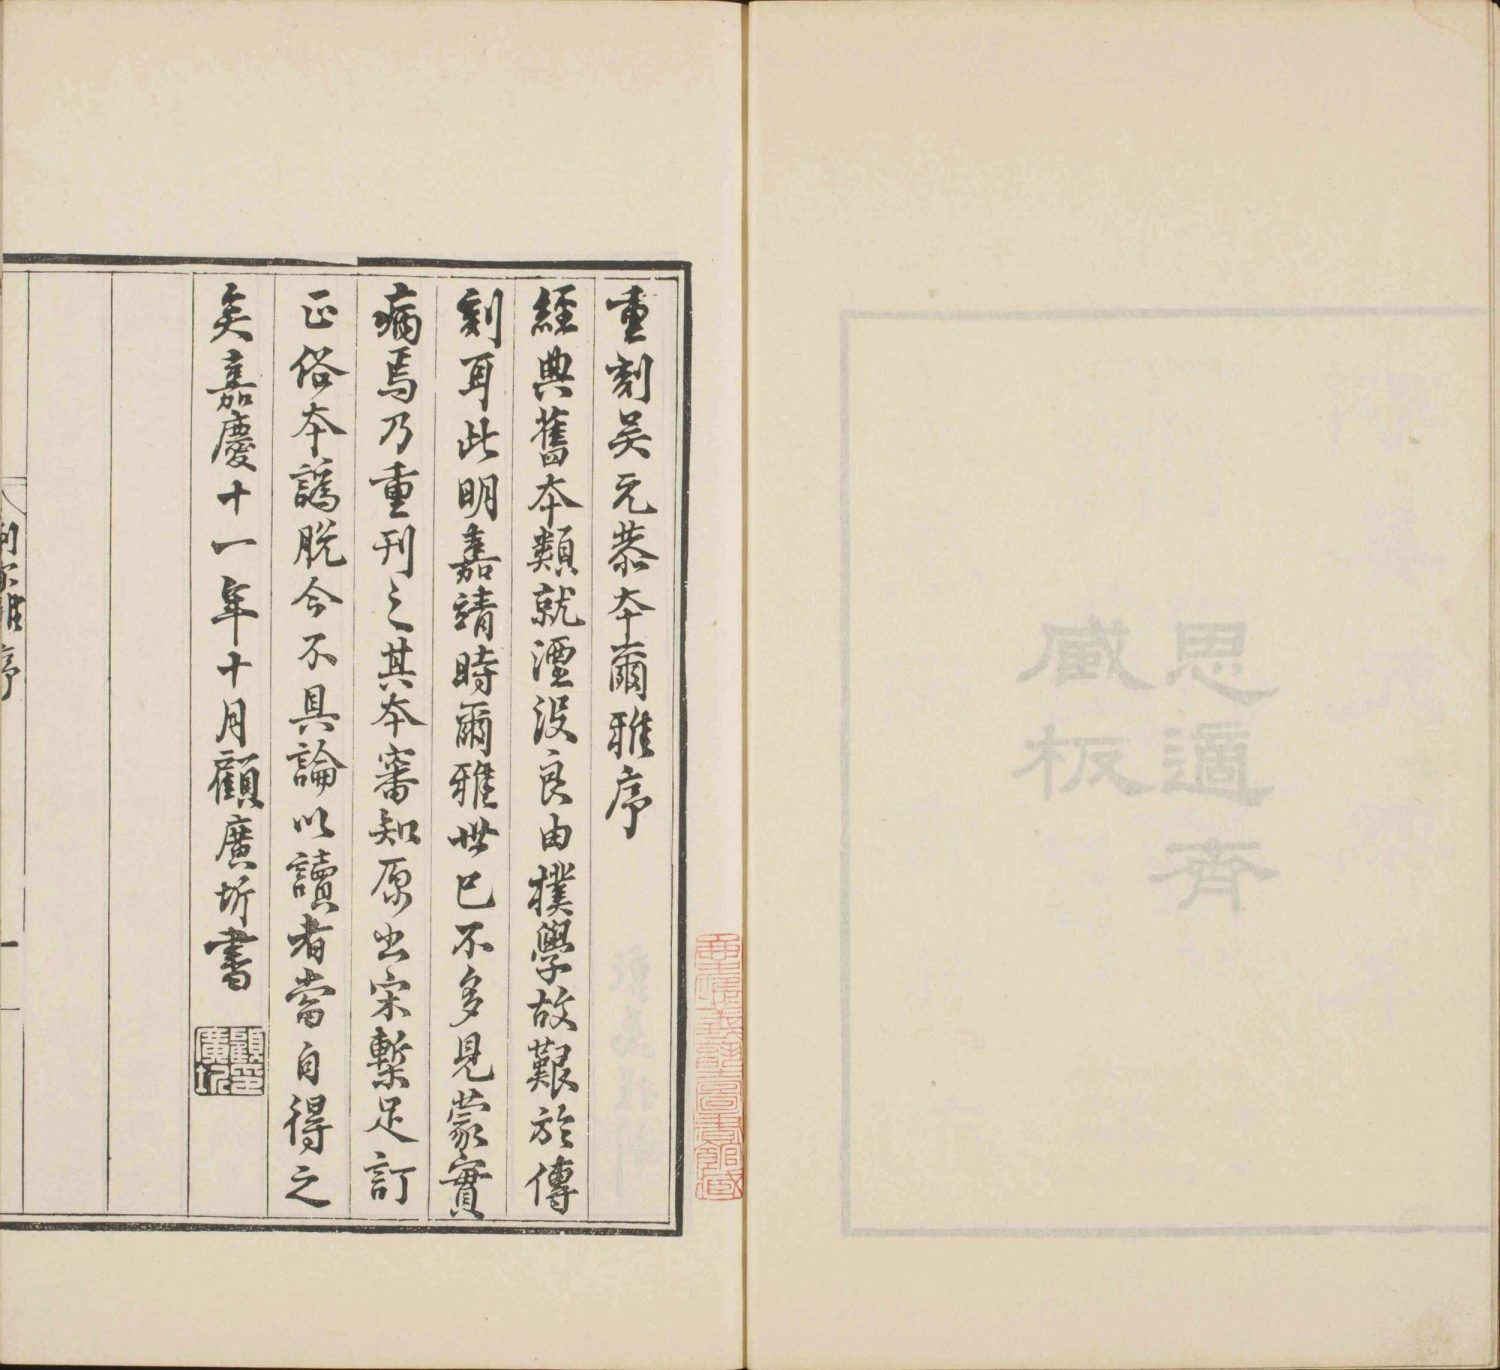 思適齋
藏板
重刻吴元恭本爾雅序
經典舊本類就湮没良由樸學故艱於傳
刻耳此明嘉靖時爾雅世已不多見蒙實
病焉乃重刊之其本審知原出宋槧足訂
正俗本譌脱今不具論以讀者當自得之
矣嘉慶十一年十月顧廣圻書
顧印
廣圻
爾雅序
一